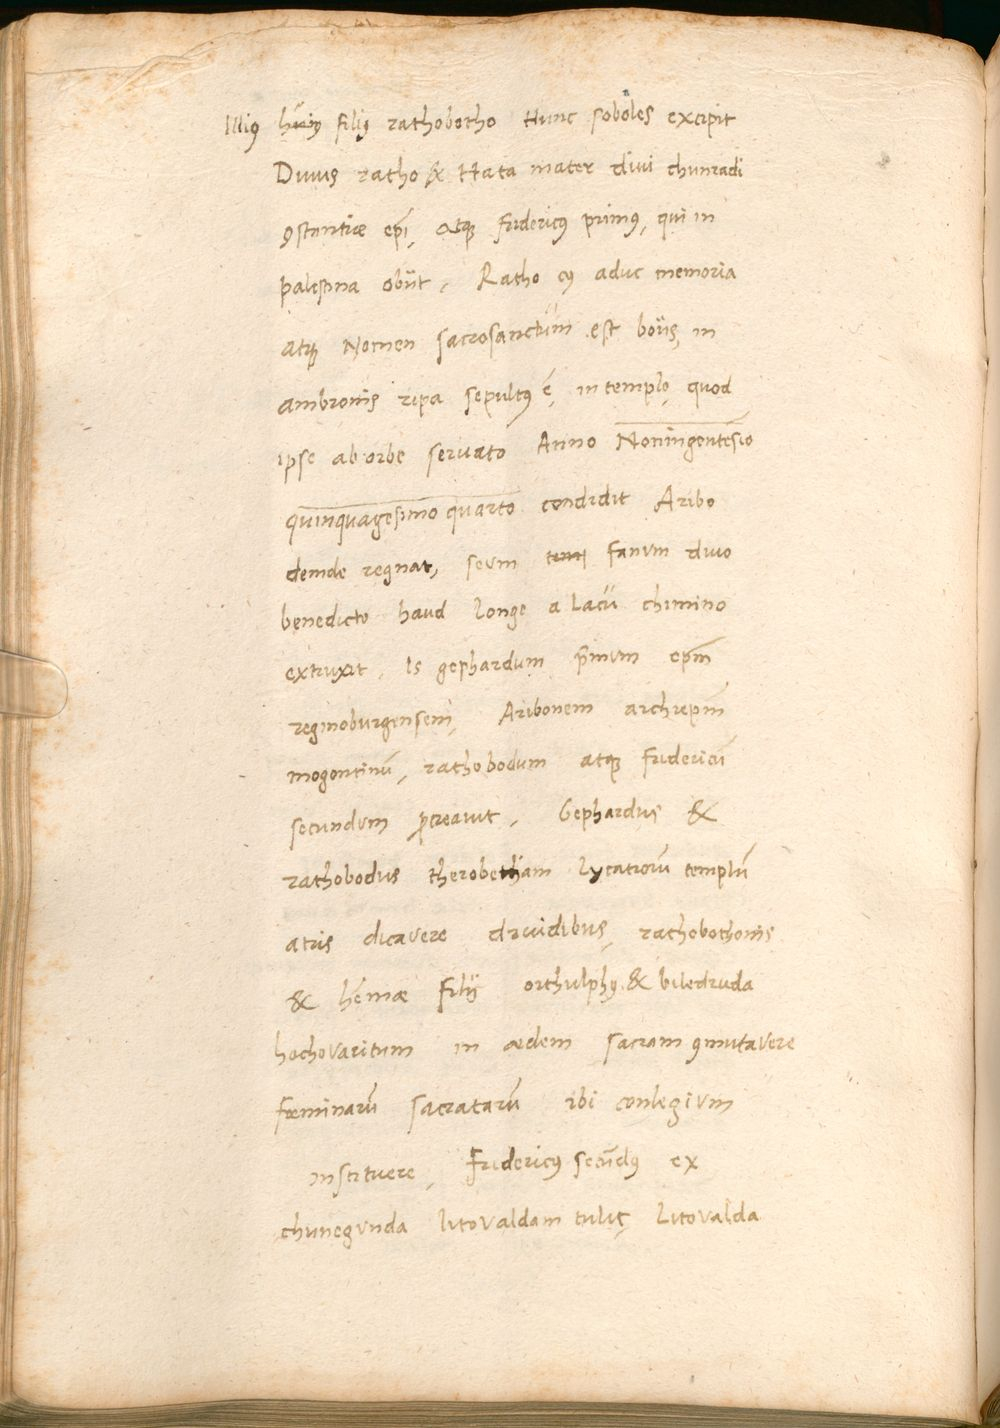 Illiꝰ huiꝰ filiꝰ rathobotho Hunc soboles excipit
Diuus ratho & Hata mater diui chunradi
ꝯstantiæ epĩ, atqꝫ fridericꝰ primꝰ, qui in
palestina obiit, Ratho cꝰ aduc memoria
atqꝫ Nomen sacrosanctum est boiis, in
ambronis ripa sepultꝰ ẽ, in templo, quod
ipse ab orbe seruato Anno Noningentesio
quinquagesimo quarto condidit Aribo
deinde regnat, seum fanum diuo
benedicto haud longe a lacu chimino
extruxit, Is gephardum p̃imum ep̃m
reginoburgensem, Aribonem archiep̃m
mogontinũ, rathobodum atqꝫ fridericũ
secundum ꝓcreauit, Gephardus &
rathobodus therobetham lycatiorũ templũ
atris dicavere druidibus, rathobothonis
& hẽmæ filii orthulphꝰ & biledruda
hachovaritum in ædem sacram ꝯmutavere
fœminarũ sacratarũ ibi conlegivm
institvere, Fridericꝰ secũdꝰ ex
chunegvnda litovaldam tulit, Litovalda